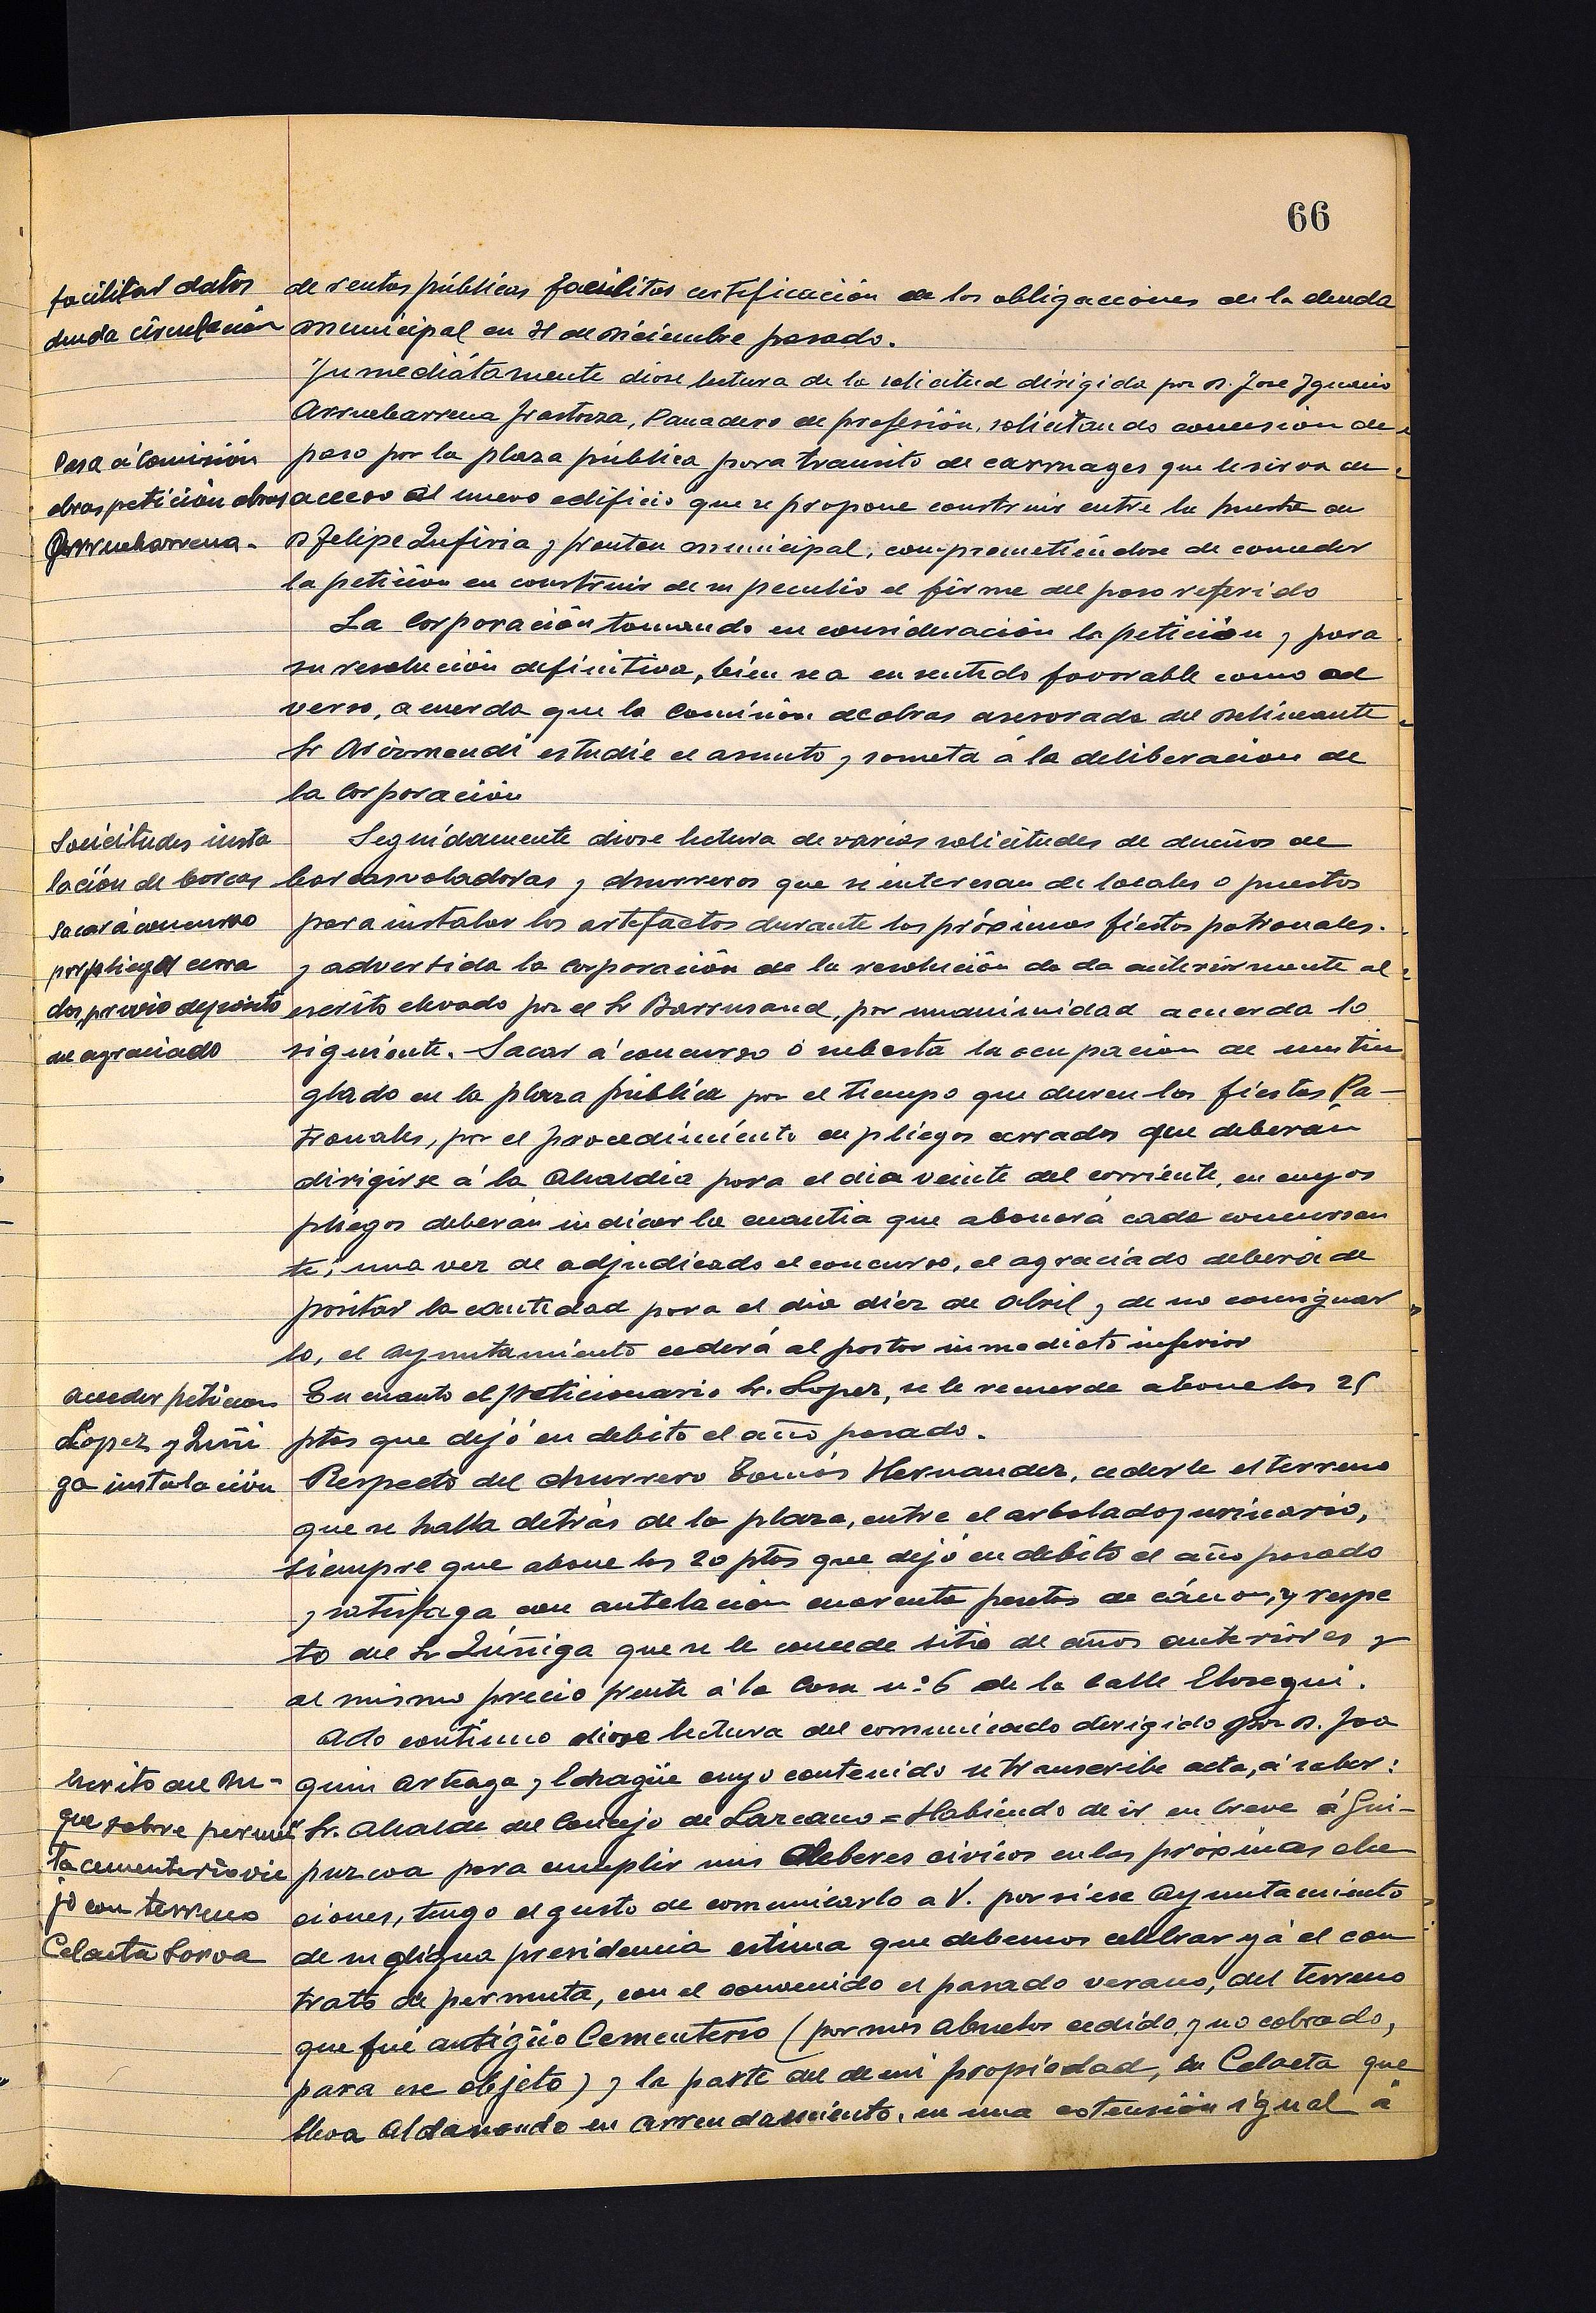 66
facilitar datos
deuda circulación
de rentas públicas facilitas certificación de las obligaciones de la deuda
municipal en 31 de Diciembre pasado.
Inmediátamente diose lectura de la solicitud dirigida por D. Jose Ignacio
Arruebarrena Irastorza, Panadero de profesión, solicitando concesion de
Pasa á Comisión
obras petición obras
Arruebarrena.
paso por la plaza pública para transito de carruages que le sirva de
acceso al nuevo edificio que se propone construir entre la huerta de
D Felipe Zufiria y frontón municipal, comprometiéndose de conceder
la petición en construir de su peculio el firme del paso referido
La Corporación tomando en consideración la petición y para
su resolución definitiva, bien sea en sentido favorable como ad
verso, acuerda que la Comisión de obras asesorada del Delineante
Sr Arizmendi estudie el asunto y someta á la deliberacion de
la Corporación
Solicitudes insta
lación de barcas
sacar á concurso
por pliegos cerra
dos, previo depósito
de agraciado
Seguidamente diose lectura de varias solicitudes de dueños de
barcas voladoras y churreros que se interesan de locales o puestos
para instalar los artefactos durante las próximas fiestas patronales.
y advertida la corporación de la resolución da da anteriormente al
escrito elevado por el Sr Barrusand, por unanimidad acuerda lo
siguiente. Sacar á concurso ó subasta la ocupacion de un tin
glado en la plaza pública por el tiempo que duren las fiestas Pa-
tronales, por el procedimiento de pliegos cerrados que deberan
dirigirse á la Alcaldia para el dia veinte del corriente, en cuyos
pliegos deberán indicar la cuantia que abonará cada concursan
te; una vez de adjudicado el concurso, el agraciado deberá de
positar la cantidad para el dia diez de Abril y de no consignar
lo, el Ayuntamiento cederá al postor inmediato inferior
Acceder peticion
Lopez y Zuñi
ga instalación
En cuanto el peticionario Sr. Lopez, se le recuerde abone las 25
ptas que dejó en debito el año pasado.
Respecto del churrero Tomás Hernandez, cederle el terreno
que se halla detrás de la plaza, entre el arbolado y urinario,
siempre que abone las 20 ptas que dejó en debito el año pasado
y satisfaga con antelacion cuarenta pesetas de cánon, y respe
to del Sr Zúñiga que se le concede sitio de años anteriores y
al mismo precio frente á la Casa nº 6 de la calle Elosegui.
Acto continuo diose lectura del comunicado dirigido por D. Joa
Escrito del Du-
que sobre permu
ta cementerio vie
jo con terreno
Celaeta Soroa
quin Arteaga y Echagüe cuyo contenido se transcribe acta, á saber:
"Sr. Alcalde del Concejo de Lazcano = Habiendo de ir en breve á Gui-
puzcoa para cumplir mis deberes civicos en las próximas elec
ciones, tengo el gusto de comunicarlo a V. por si ese Ayuntamiento
de su digna presidencia estima que debemos celebrar yá el con
trato de permuta, con el convenido el pasado verano, del terreno
que fué antigüo Cementerio (por mis Abuelos cedido, y no cobrado,
para ese objeto) y la parte del de mi propiedad, en Celaeta que
lleva Aldanondo en arrendamiento, en una extensión igual á